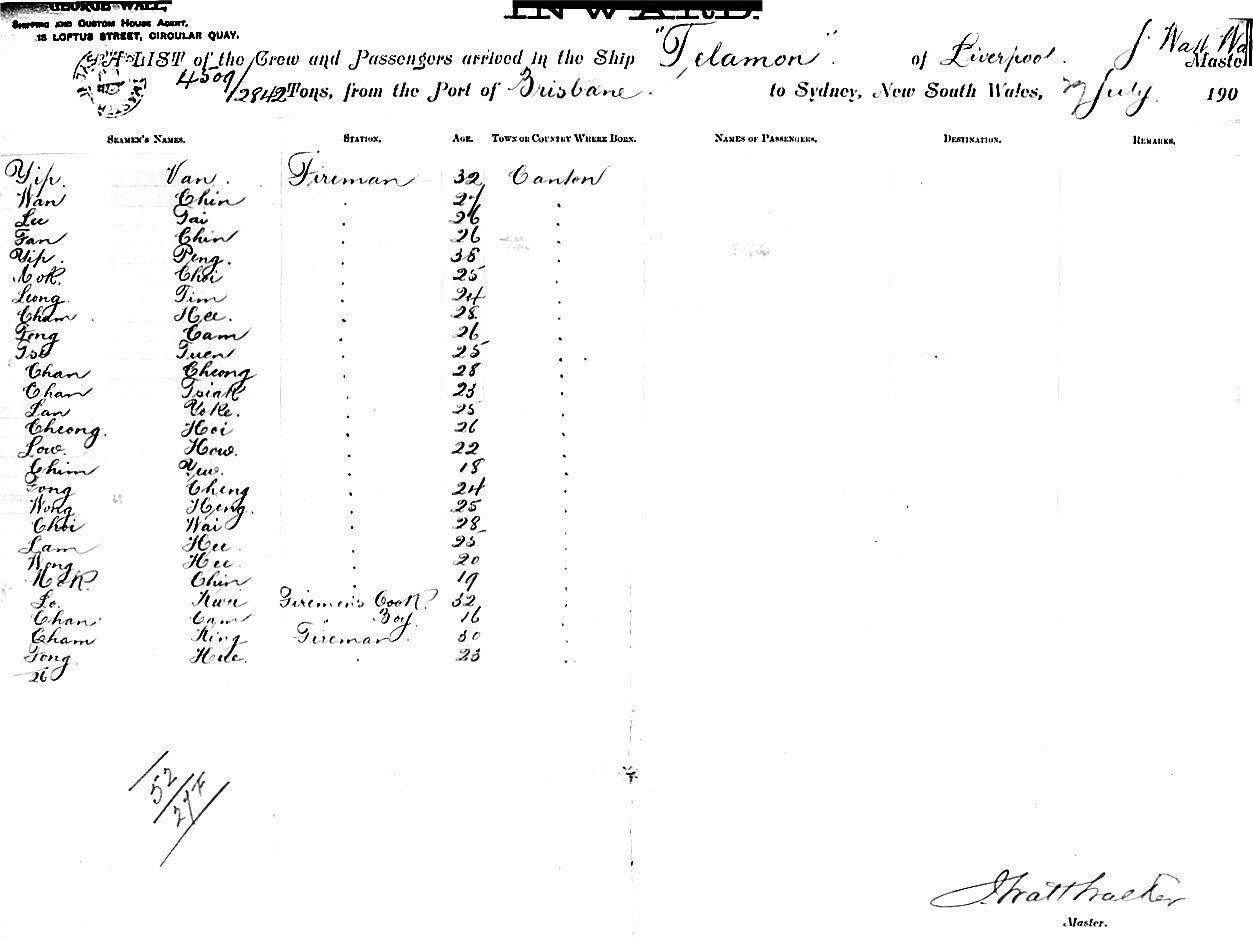 GEORGE WALL,
SHIPPING AND CUSTOM HOUSE AGENT,
18 LOFTUS STREET, CIRCULAR QUAY.
INWARD.
A LIST of the Crew and Passengers arrived in the Ship "Telamon" of Liverpool. J. Watt Master
4509/2842 Tons, from the Port of Brisbane. to Sydney, New South Wales, July 190
SEAMEN'S NAMES. STATION. AGE. TOWN OR COUNTRY WHERE BORN. NAMES OF PASSENGERS. DESTINATION. REMARKS.
Yip. Van. Fireman 32 Canton
Wan Chin 27
Lee Tai 26
Fan Chin 26
Yip. Peng. 38
Mok. Choi 25
Leong Tim 24
Cham. Hee. 28
Feng Cam 26
Tse Tuen 25
Chan Cheong 28
Chan Tsiak 23
Lan Yoke. 25
Cheong. Hoi 26
Low. How. 22
Chim Yew. 18
Fong Cheng 24
Wong Heng. 25
Choi Wai 28
Lam Hee. 25
Wong Hee. 20
Mok. Chin 19
Lo. Kwei Firemen's Cook. 32
Chan Cam " Boy. 16
Cham King Fireman. 30
Fong Hue. 23
26
52
274
J. Watt Walker
Master.